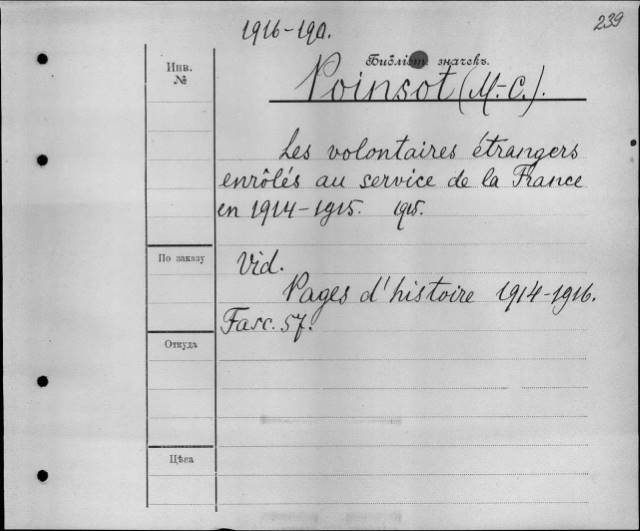 1916-190.
239
Инв. №
Библіот. значекъ.
Poinsot (M.-C.).
Les volontaires étrangers
enrôlés au service de la France
en 1914-1915. 1915.
По заказу
Vid.
Pages d'histoire 1914-1916.
Fasc. 57.
Откуда
Цѣна